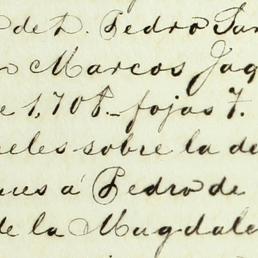 de D. Pedro
Marcos Jaq
e 1,708.- fojas 7.
eles sobre la de
ues á Pedro de
de la Magdale